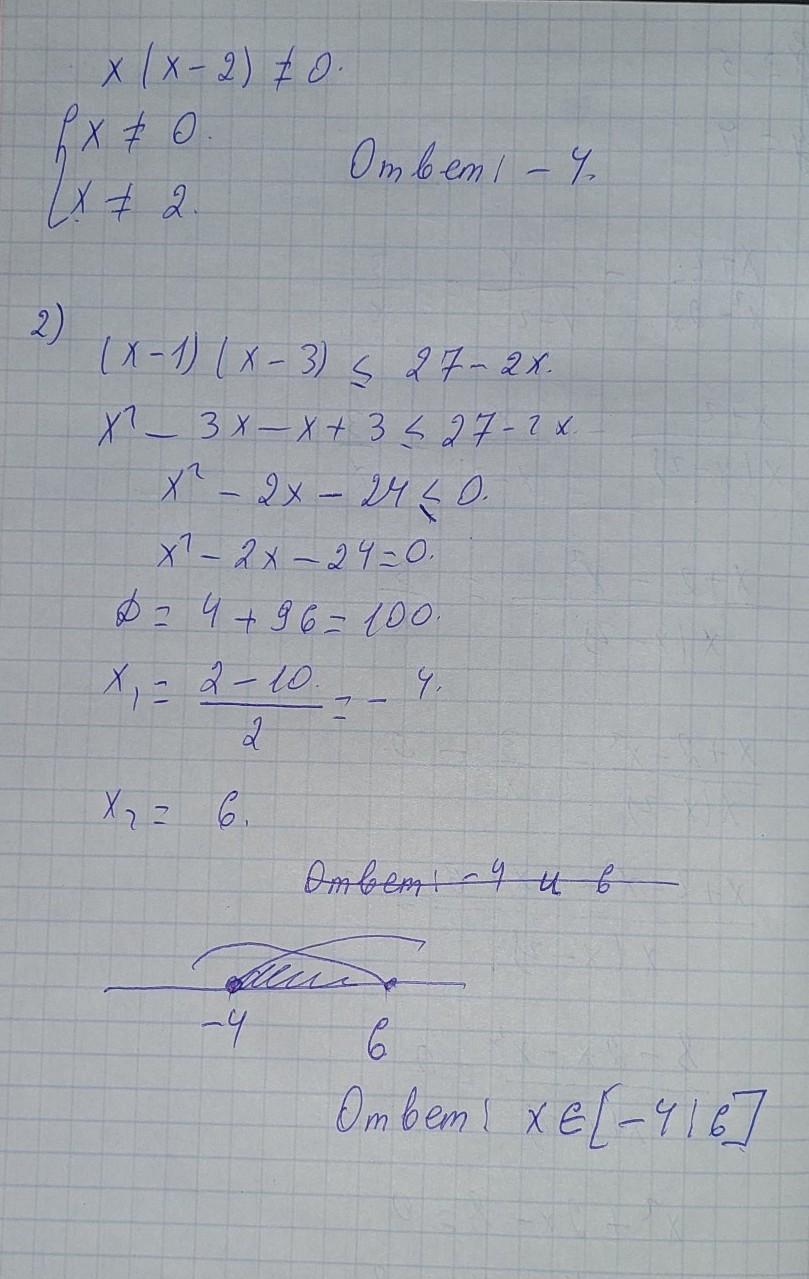 x(x-2) ≠ 0.
{ x ≠ 0.
x ≠ 2.
Ответ: -4.
2)
(x-1)(x-3) ≤ 27-2x.
x² - 3x - x + 3 ≤ 27-2x
x² - 2x - 24 ≤ 0.
x² - 2x - 24 = 0.
D = 4 + 96 = 100.
x₁ = (2-10)/2 = -4.
x₂ = 6.
Ответ: -4 и 6
-4 6
Ответ: x ∈ [-4; 6]